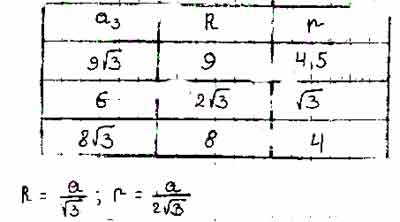 a₃ R r
9√3 9 4,5
6 2√3 √3
8√3 8 4
R = a/√3 ; r = a/2√3